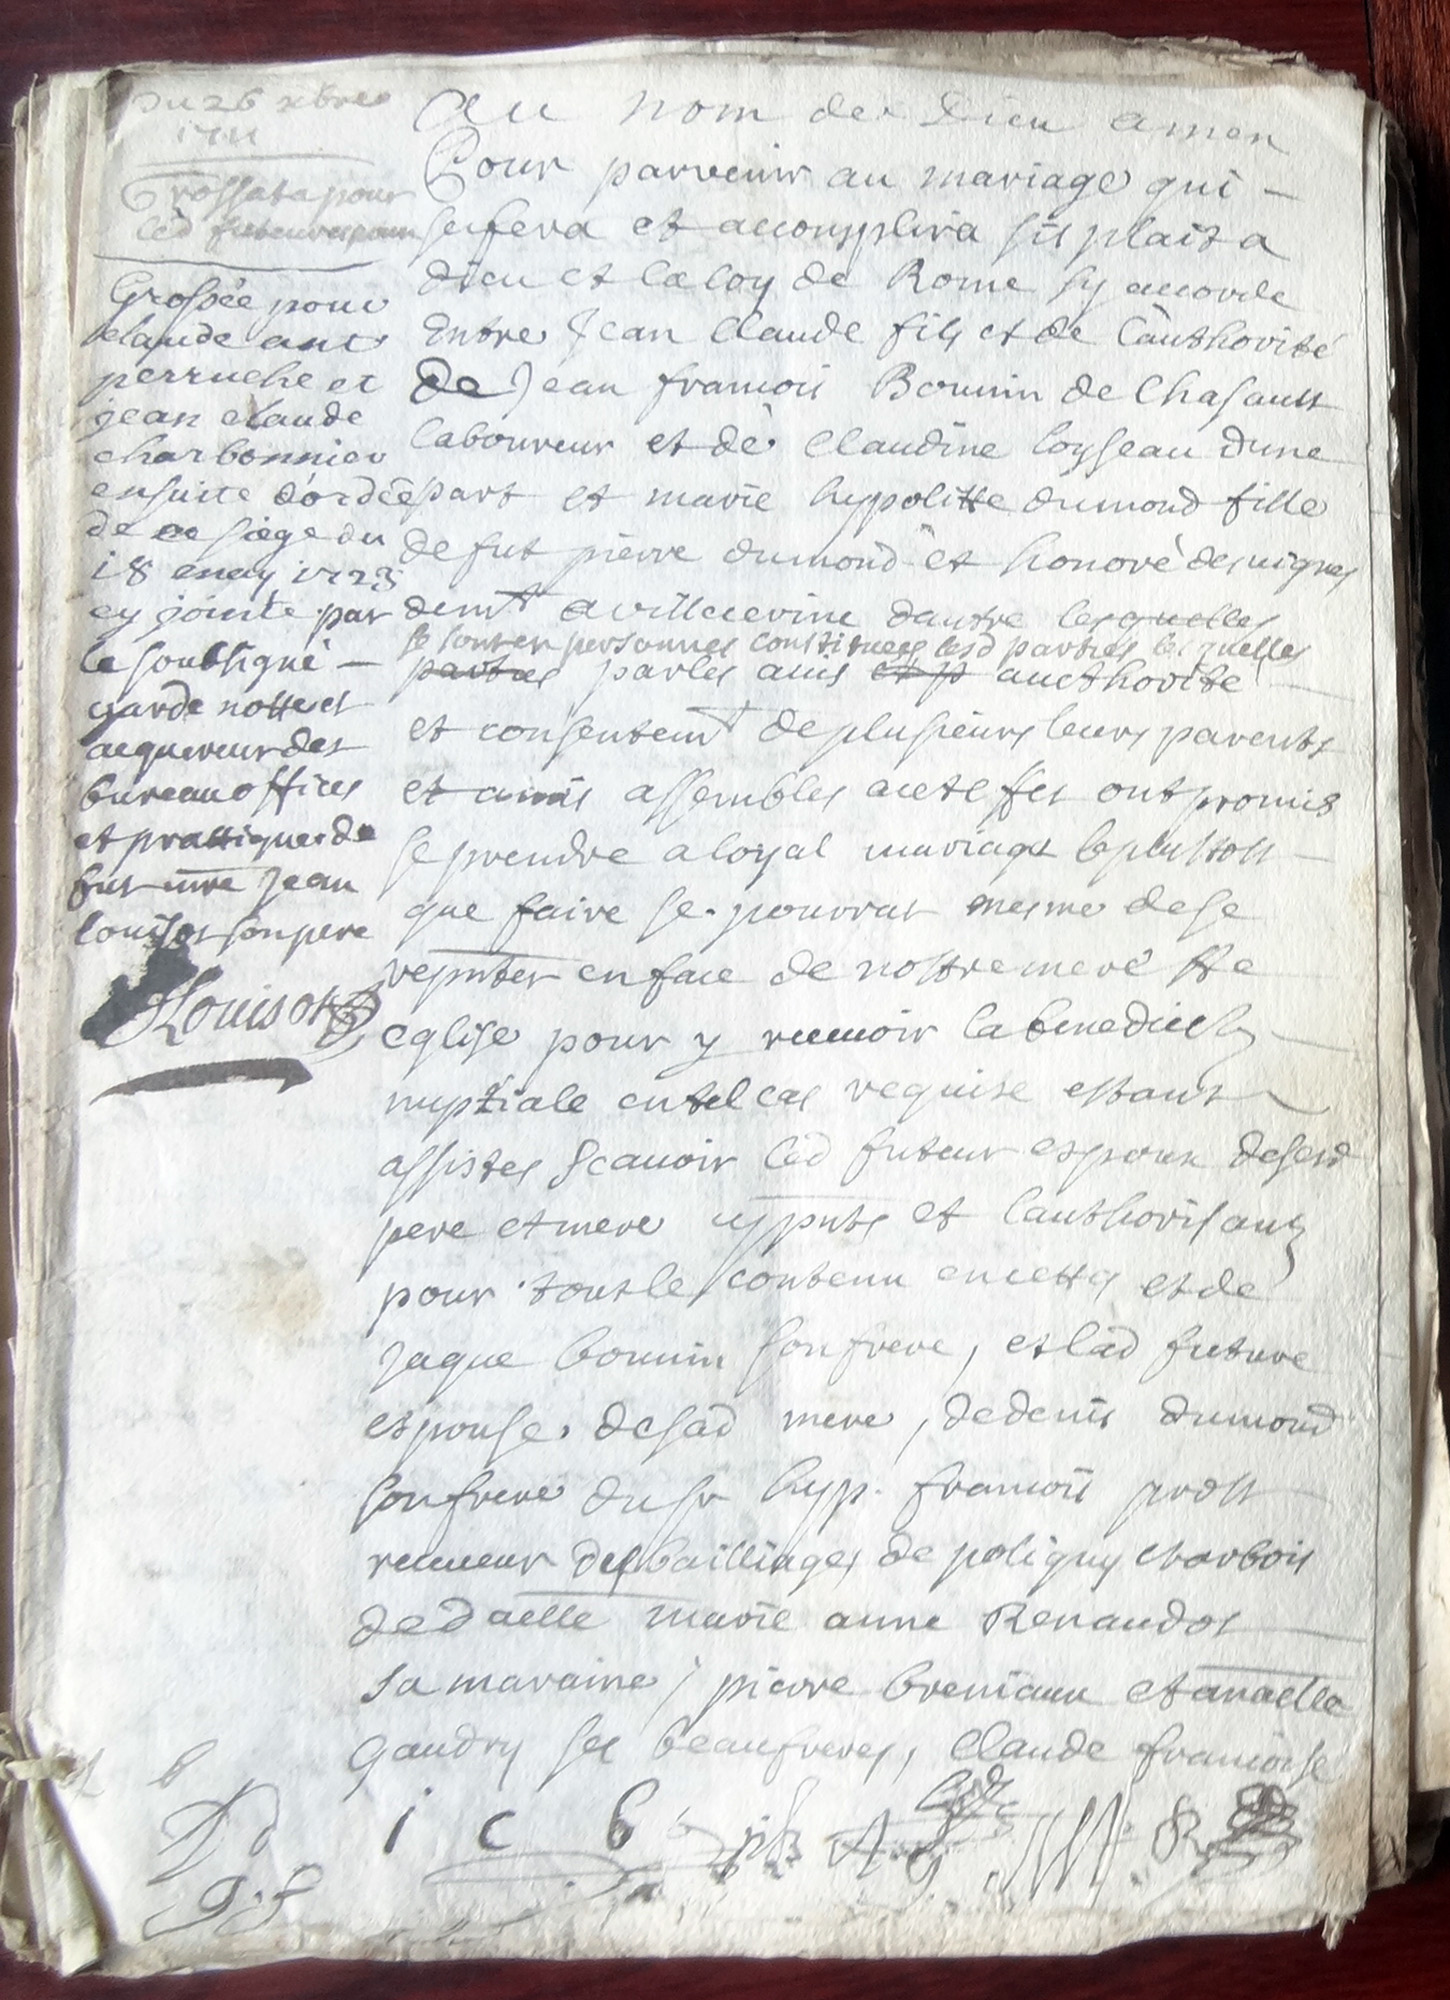 Du 26 xbre
1711
Grossata pour
led futeur espoux
Grossée pour
claude ant
perruche et
jean claude
charbonnier
ensuite dordée
de ce siege du
18 may 1723
cy jointe par
le soubsigné
garde notte et
acquereur des
bureau offices
et prattiques de
fut mre Jean
Louisot son pere
Louisot
Au nom de Dieu amen
Pour parvenir au mariage qui
se fera et accomplira sil plait a
dieu et la loy de Rome sy accorde
Entre Jean Claude fils et de Lauthorité
De Jean francois Bouuin de Chasault
laboureur et de Claudine Loyseau dune
part et marie hyppolitte dumond fille
de fut pierre dumond et honoré desuignes
demt a villerserine dautre lesquelles
se touttes personnes constituees lesd parties lesquelles
parties par les auis et p aucthorité
et consentemt de plusieurs leurs parents
et amis assembles a cet effet ont promis
se prendre a loyal mariage le plustost
que faire se pourrat mesme de se
repnter en face de nostre mere Ste
eglise pour y receuoir la benediction
nuptiale en tel cas requise estant
assistes scauoir led futeur espoux de sesd
pere et mere cy pnts et lauthorisant
pour tout le contenu en cette et de
Jaque bouuin son frere, et lad future
espouse de sad mere, de denis dumond
son frere du sr hyp. francois prost
receueur des bailliages de poligny et arbois
de daelle marie anne Renaudot
sa maraine, pierre breniaux et anatelle
Gaudry ses beaufreres, Claude francoise
b
Dd
i c b